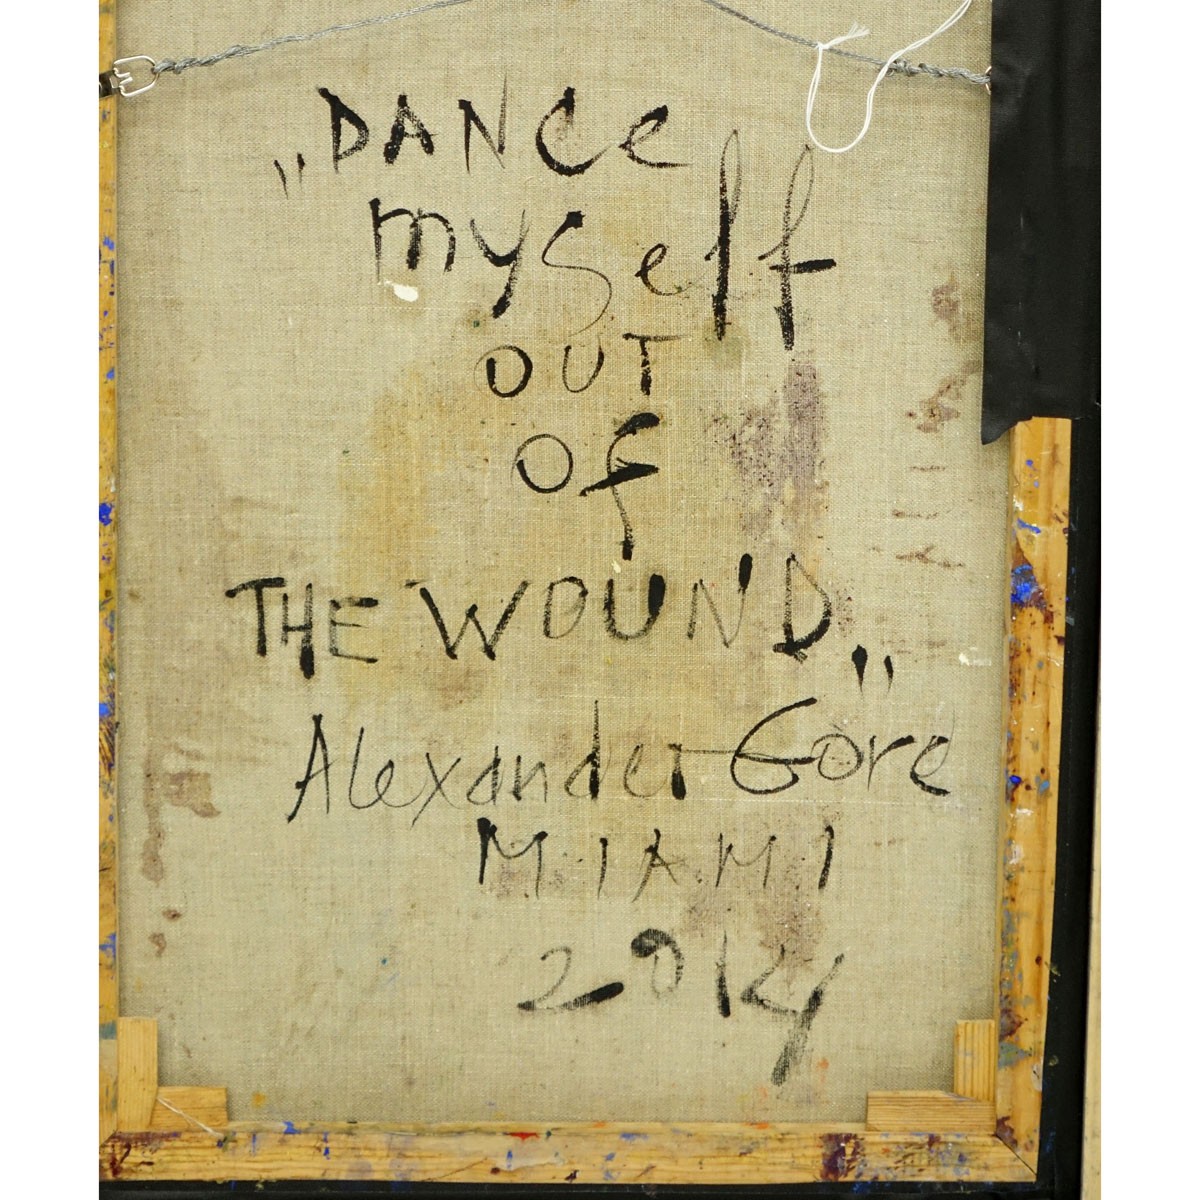 „DANCe
myself
OUT
Of
THE WOUND„
Alexander Gore
MIAMI
2014